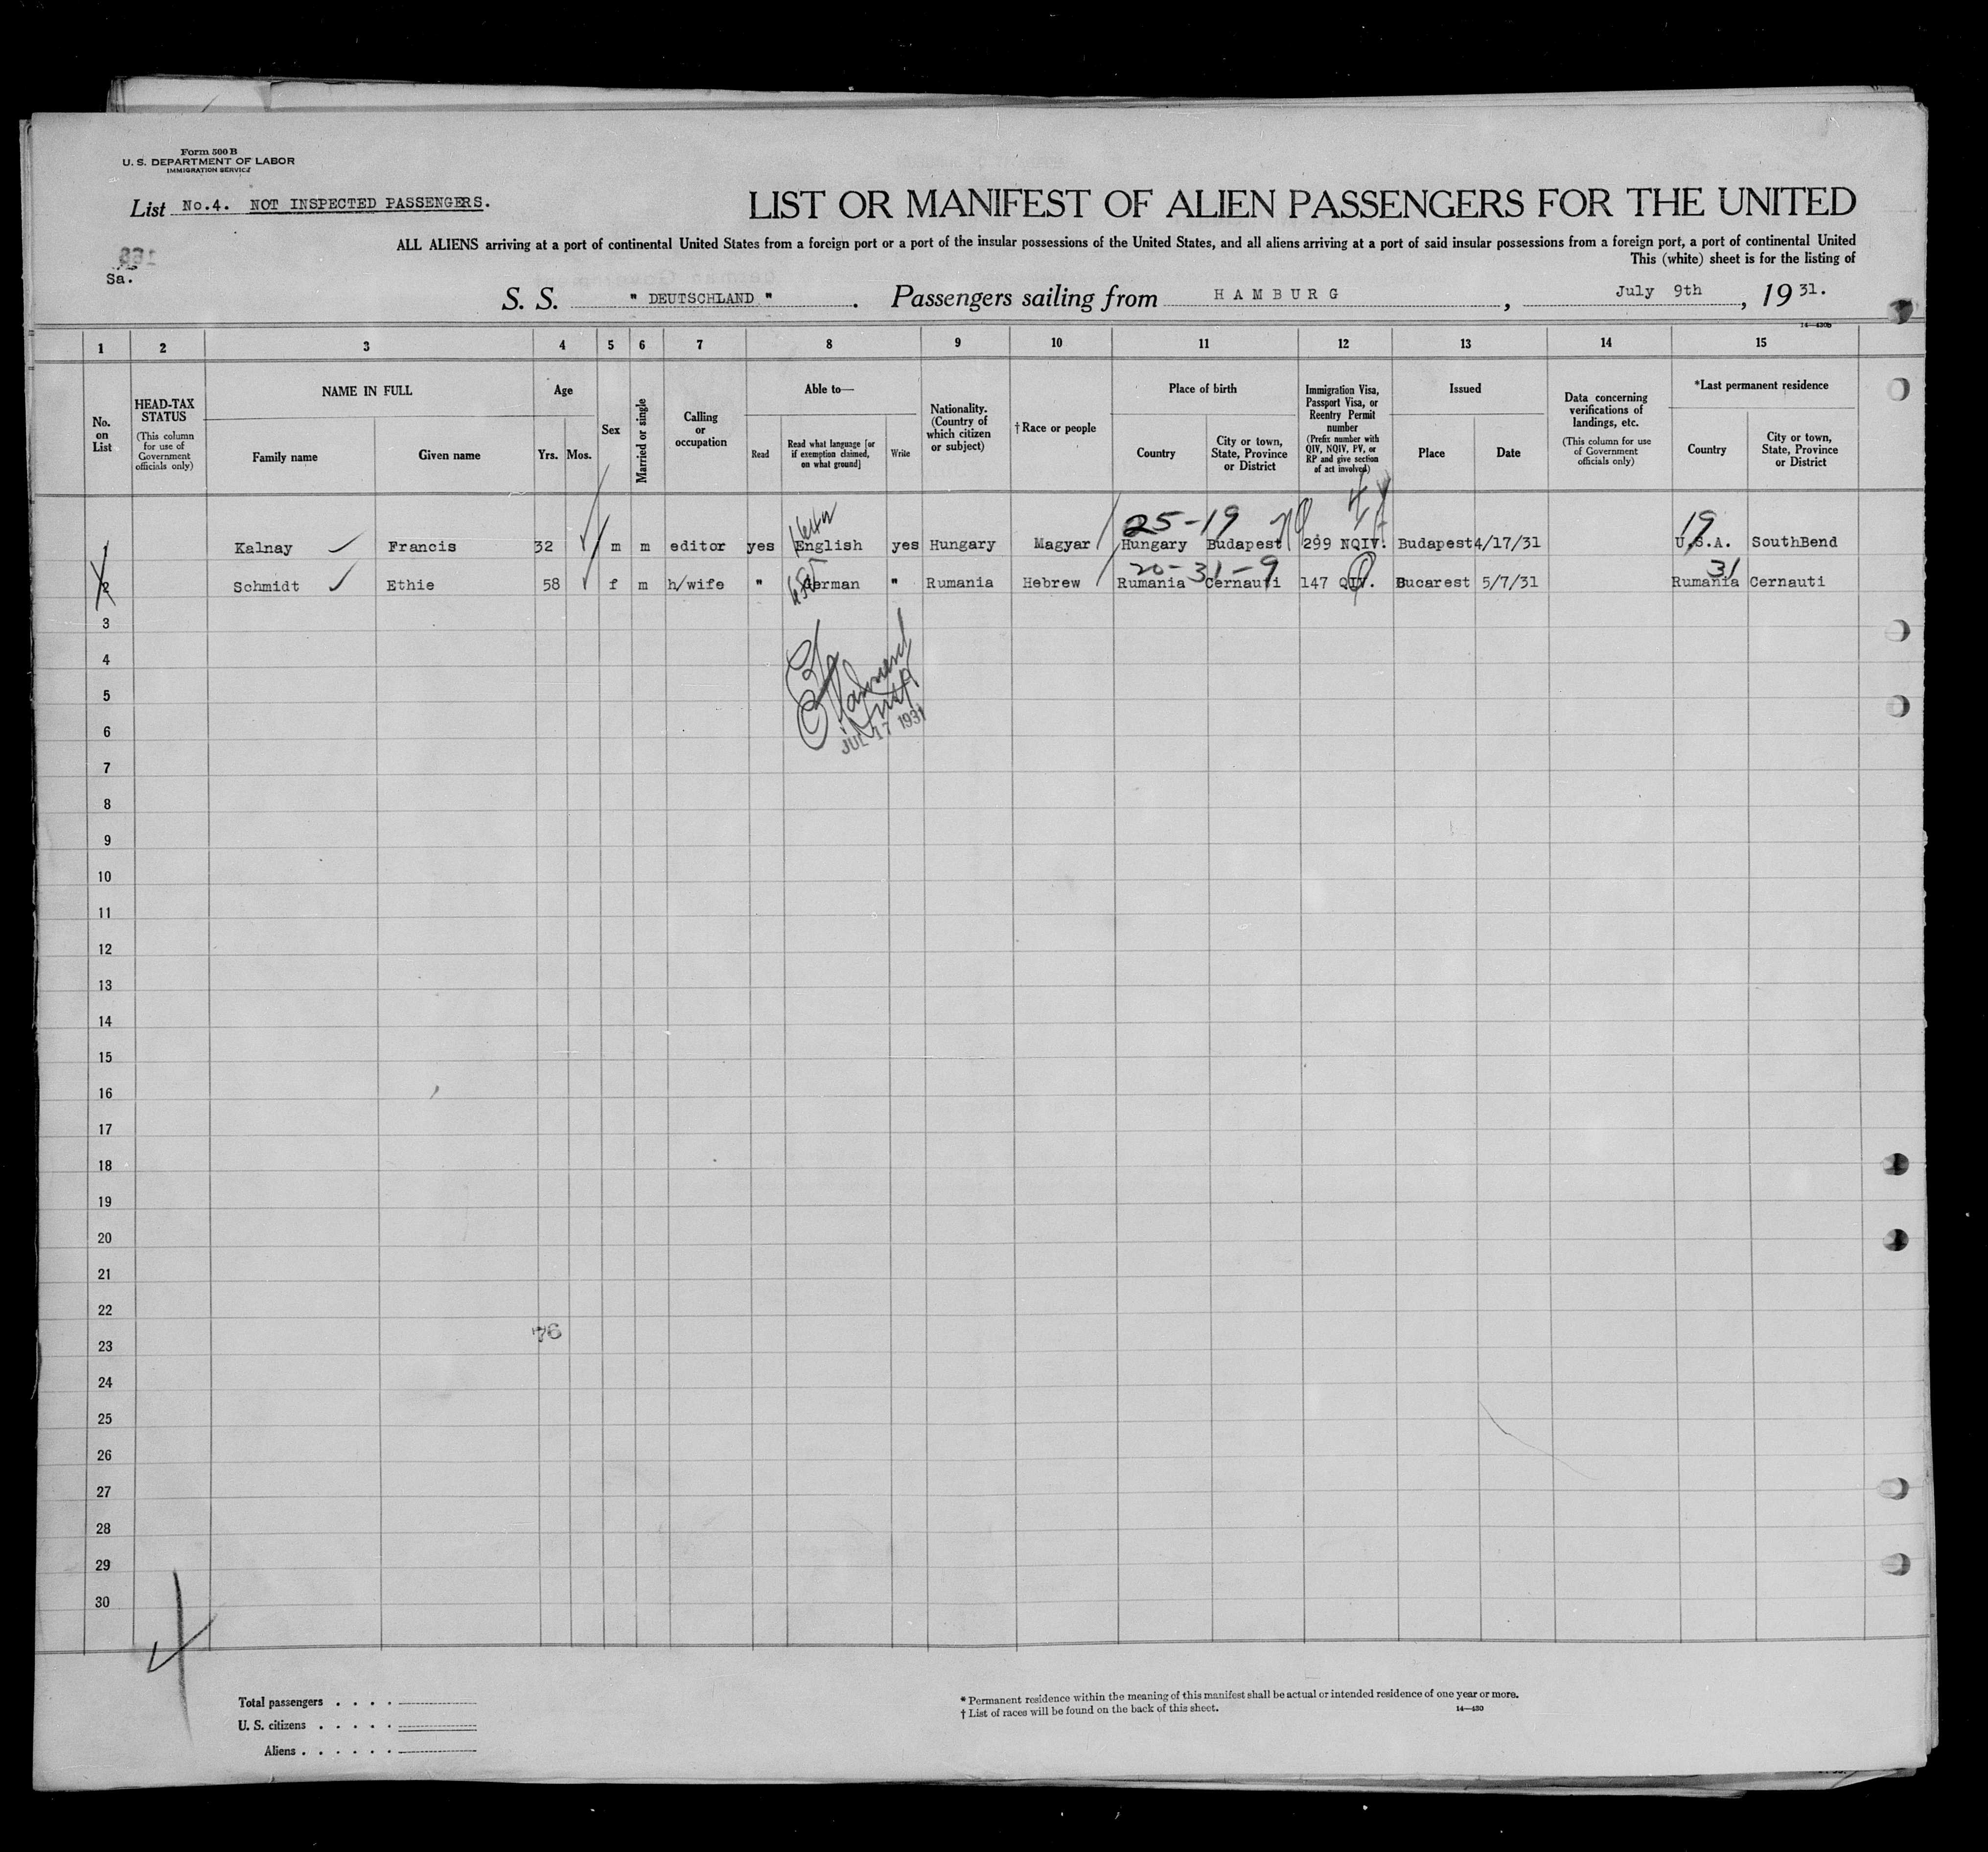 Form 500 B
U. S. DEPARTMENT OF LABOR
IMMIGRATION SERVICE
List No.4. NOT INSPECTED PASSENGERS.
LIST OR MANIFEST OF ALIEN PASSENGERS FOR THE UNITED
ALL ALIENS arriving at a port of continental United States from a foreign port or a port of the insular possessions of the United States, and all aliens arriving at a port of said insular possessions from a foreign port, a port of continental United
This (white) sheet is for the listing of
Sa.
S. S. " DEUTSCHLAND " . Passengers sailing from HAMBURG , July 9th , 19 31.
1 2 3 4 5 6 7 8 9 10 11 12 13 14 15
No. on List
HEAD-TAX STATUS (This column for use of Government officials only)
NAME IN FULL
Family name Given name
Age
Yrs. Mos.
Sex
Married or single
Calling or occupation
Able to—
Read
Read what language [or if exemption claimed, on what ground]
Write
Nationality. (Country of which citizen or subject)
† Race or people
Place of birth
Country
City or town, State, Province or District
Immigration Visa, Passport Visa, or Reentry Permit number (Prefix number with QIV, NQIV, PV, or RP and give section of act involved)
Issued
Place Date
Data concerning verifications of landings, etc. (This column for use of Government officials only)
*Last permanent residence
Country
City or town, State, Province or District
25-19 19
1 Kalnay Francis 32 m m editor yes English yes Hungary Magyar Hungary Budapest 299 NQIV. Budapest 4/17/31 U.S.A. SouthBend
20-31-9 31
2 Schmidt Ethie 58 f m h/wife " German " Rumania Hebrew Rumania Cernauti 147 QIV. Bucarest 5/7/31 Rumania Cernauti
3
4
5
6
JUL 17 1931
7
8
9
10
11
12
13
14
15
16
17
18
19
20
21
22
76
23
24
25
26
27
28
29
30
Total passengers . . . .
U. S. citizens . . . . .
Aliens . . . . . .
* Permanent residence within the meaning of this manifest shall be actual or intended residence of one year or more.
† List of races will be found on the back of this sheet.
14—430